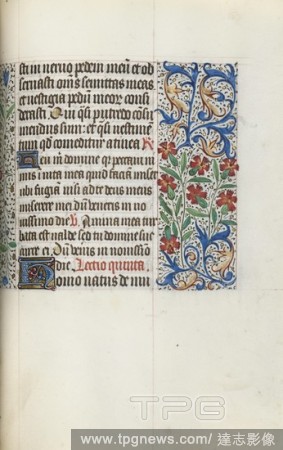 sti in nervo pedem meu et ob
servasti oms semitas meas
et vestigia pedu meor consi
derasti Qui qsi putredo cosu
mendus sum et qsi vestime
tum qd comeditur a tinea R
Heu mi domine q peccavi ni
mis i vita mea quid facia miser
ubi fugia nisi ad te deus meus
miserere mei du veneris in no
vissimo die V Anima mea tur
bata est valde sed tu domine suc
curre ei Du venis in novissimo
die Lectio quinta
Homo natus de mu
TPG
www.tpgnews.com/ 達志影像